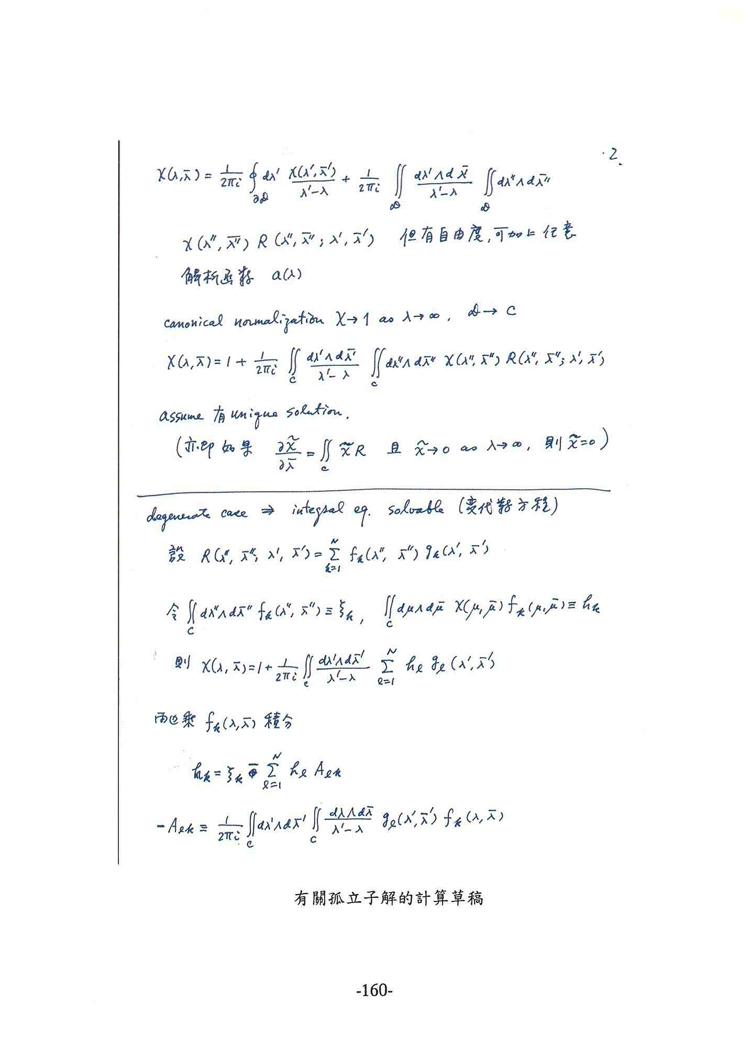 ·2.
χ(λ,λ̄) = 1/2πi ∮_∂𝒟 dλ' χ(λ',λ̄')/(λ'-λ) + 1/2πi ∬_𝒟 dλ'∧dλ̄'/(λ'-λ) ∬_𝒟 dλ''∧dλ̄''
χ(λ'',λ̄'') R(λ'',λ̄'';λ',λ̄') 但有自由度,可加上任意
解析函數 a(λ)
canonical normalization χ→1 as λ→∞, 𝒟→C
χ(λ,λ̄) = 1 + 1/2πi ∬_C dλ'∧dλ̄'/(λ'-λ) ∬_C dλ''∧dλ̄'' χ(λ'',λ̄'') R(λ'',λ̄'';λ',λ̄')
assume 有 unique solution.
(亦即如果 ∂χ̃/∂λ̄ = ∬_C χ̃R 且 χ̃→0 as λ→∞, 則 χ̃=0)
degenerate case ⇒ integral eq. solvable (變代數方程)
設 R(λ'',λ̄'',λ',λ̄') = Σ_{k=1}^N f_k(λ'',λ̄'') g_k(λ',λ̄')
令 ∬_C dλ''∧dλ̄'' f_k(λ'',λ̄'') ≡ ξ_k, ∬_C dμ∧dμ̄ χ(μ,μ̄) f_k(μ,μ̄) ≡ h_k
則 χ(λ,λ̄) = 1 + 1/2πi ∬_C dλ'∧dλ̄'/(λ'-λ) Σ_{ℓ=1}^N h_ℓ g_ℓ(λ',λ̄')
兩邊乘 f_k(λ,λ̄) 積分
h_k = ξ_k Σ_{ℓ=1}^N h_ℓ A_ℓk
-A_ℓk ≡ 1/2πi ∬_C dλ'∧dλ̄' ∬_C dλ∧dλ̄/(λ'-λ) g_ℓ(λ',λ̄') f_k(λ,λ̄)
有關孤立子解的計算草稿
-160-